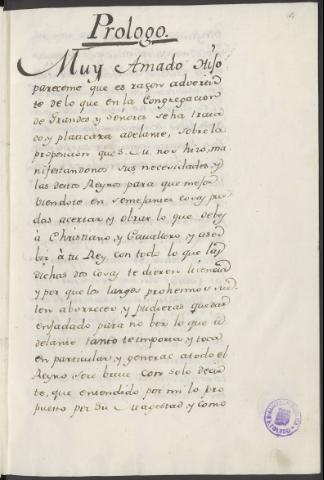 Prologo.
Muy Amado Hijo
pareceme que es razon advertir
te de lo que en la Congregacion
de Grandes y Señores se ha trata
do y platicara adelante, sobre la
proposicion que S. M. nos hizo, ma
nifestandonos sus necesidades, y
las destos Reynos para que mejor
biendote en semejantes cosas pue
das acertar, y obrar lo que debes
à Christiano, y Cavallero, y a se
ber à tu Rey, con todo lo que las
dichas dos cosas te dieren licencia
y por que los largos prohemios sue
len aborrecer, y pudieras quedar
enfadado para no ber lo que a
delante tanto te importa, y toca
en particular, y general a todo el
Reyno, sere breve con solo decir
te, que entendido por mi lo pro
puesto por Su Magestad, y como